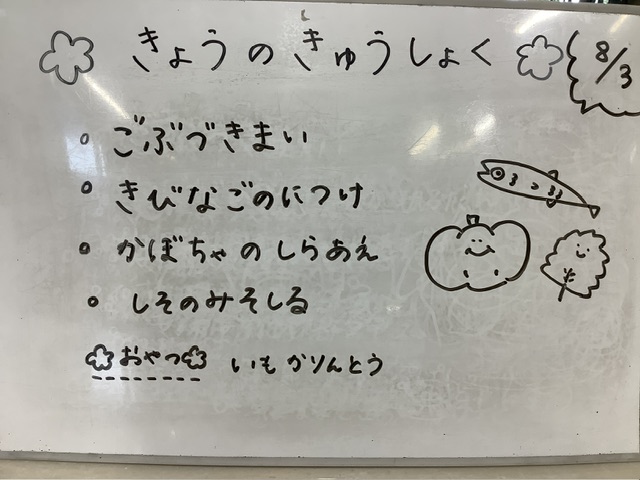 きょうのきゅうしょく
8/3
ごぶづきまい
きびなごのにつけ
かぼちゃのしらあえ
しそのみそしる
おやつ いもかりんとう